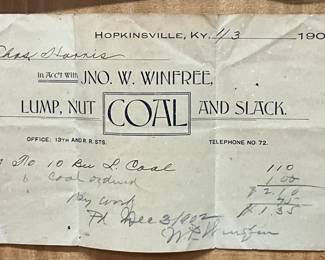 HOPKINSVILLE, KY. 1/3 190
Chas Harris
In Acc't With JNO. W. WINFREE,
LUMP, NUT COAL AND SLACK.
OFFICE: 13TH AND R. R. STS. TELEPHONE NO. 72.
To 10 Bu L. Coal 110
Coal ordered 1.00
$ 2.10
By work 75
Pd Dec 3/1902 $ 1.35